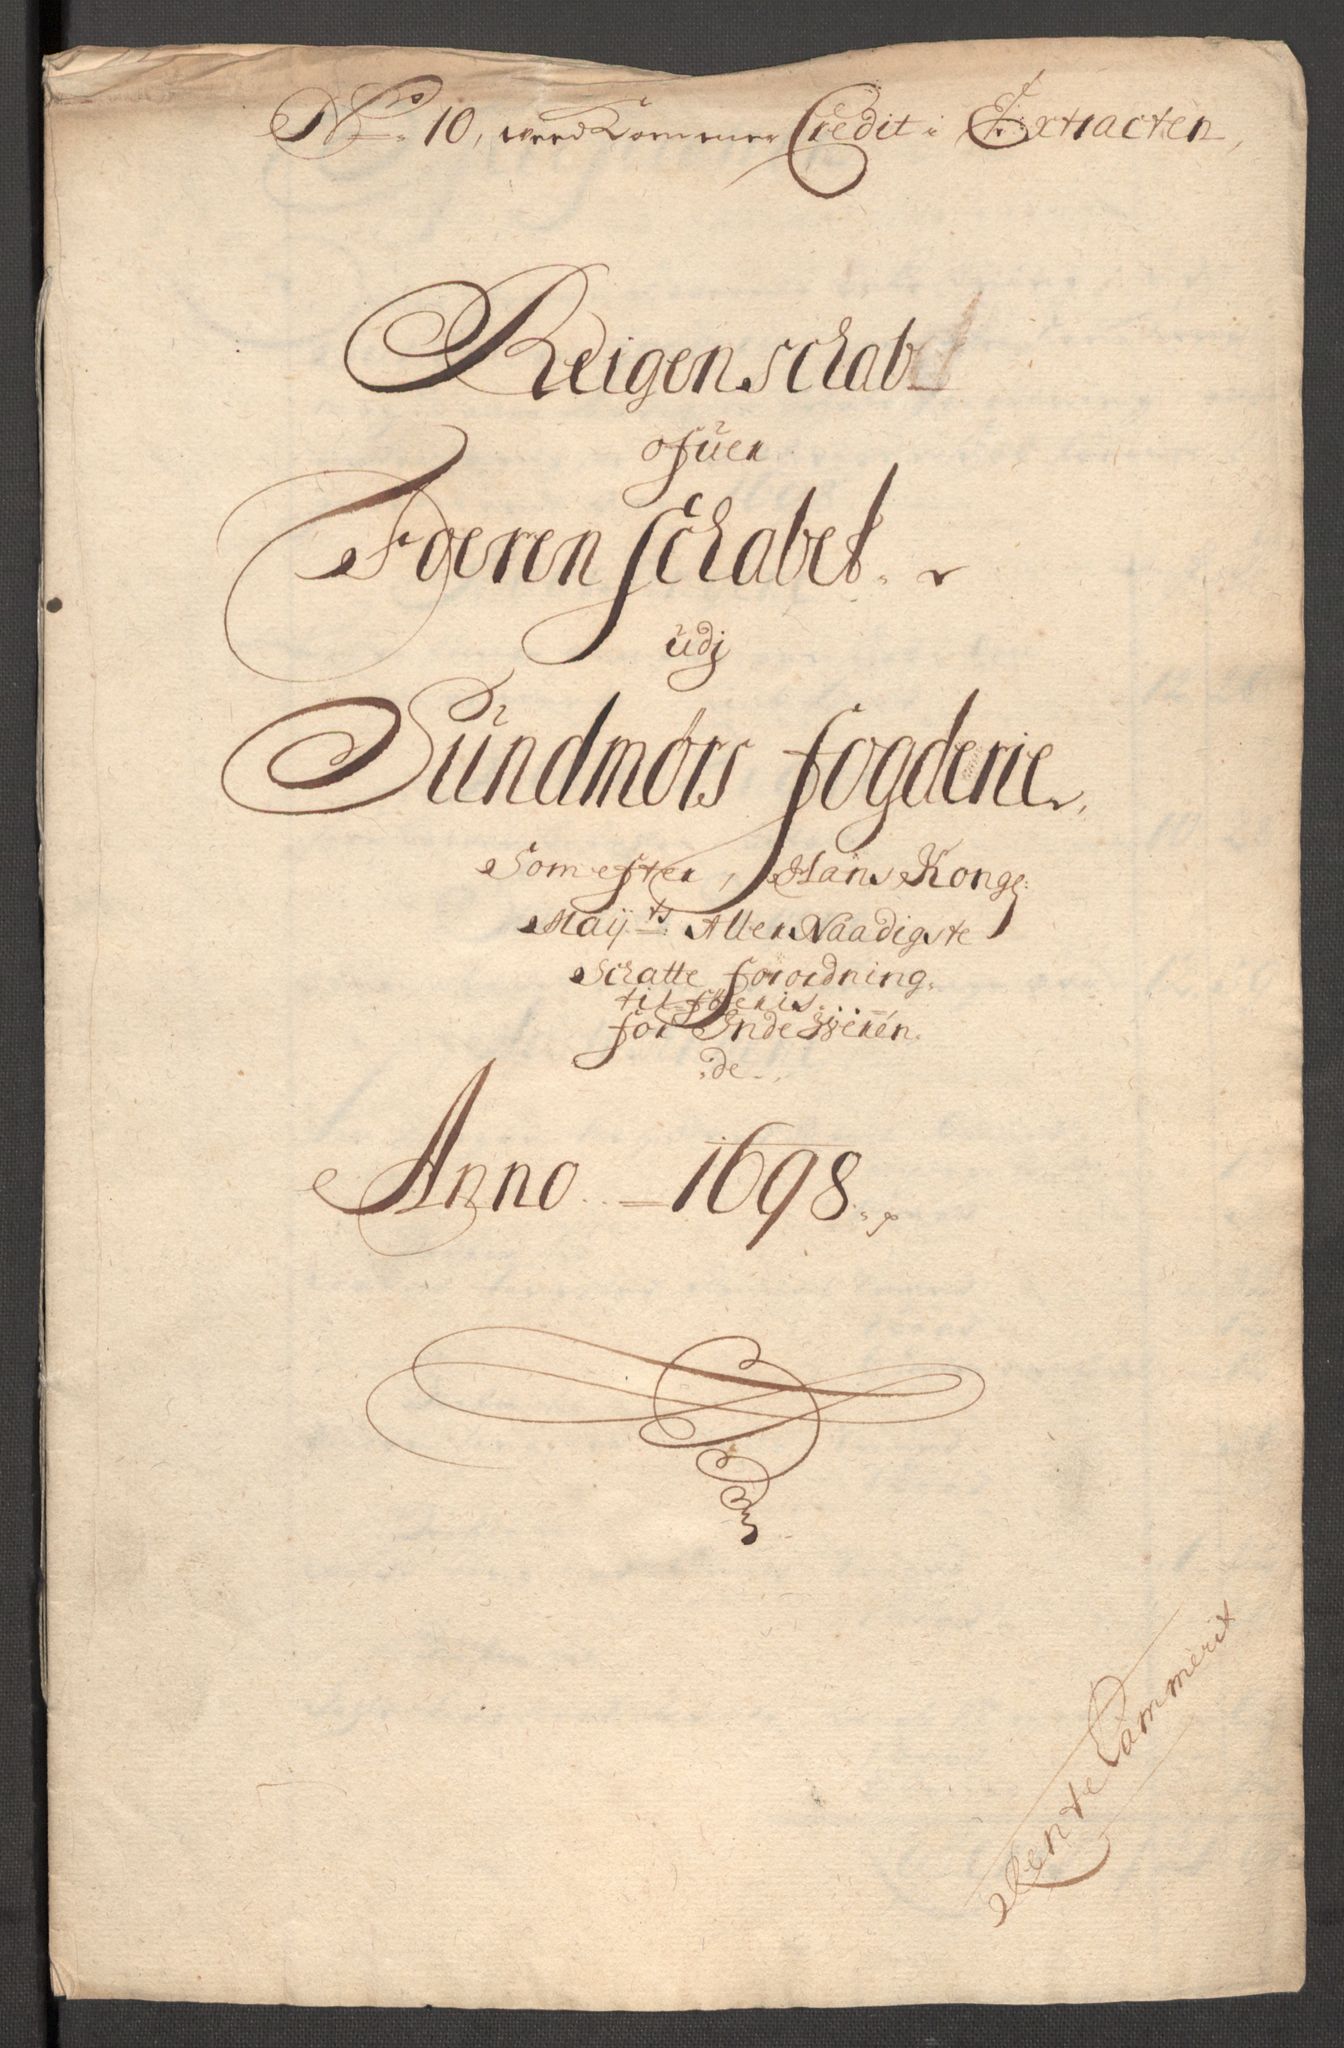 No. 10, wedkommer Credit i Extracten
Reigenschab
ofuer
Foerenschabet
udj
Sundmørs fogderie
Som efter, Hans Konge:
Maÿ:ts Aller Naadigste
Schatte forordning
til føeris
for Indewæren
:de
Anno 1698
Rente Cammerit